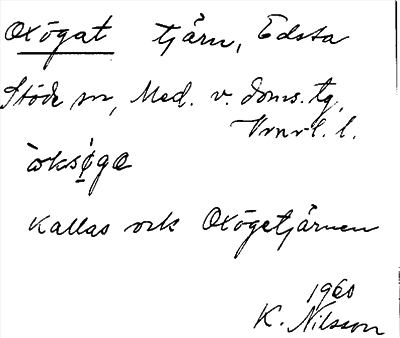 Oxögat tjärn, Edsta
Stöde sn, Med. v. doms. tg,
Vrnrl. l.
òksø̀gɐ
Kallas ock Oxögetjärnen
1960
K. Nilsson